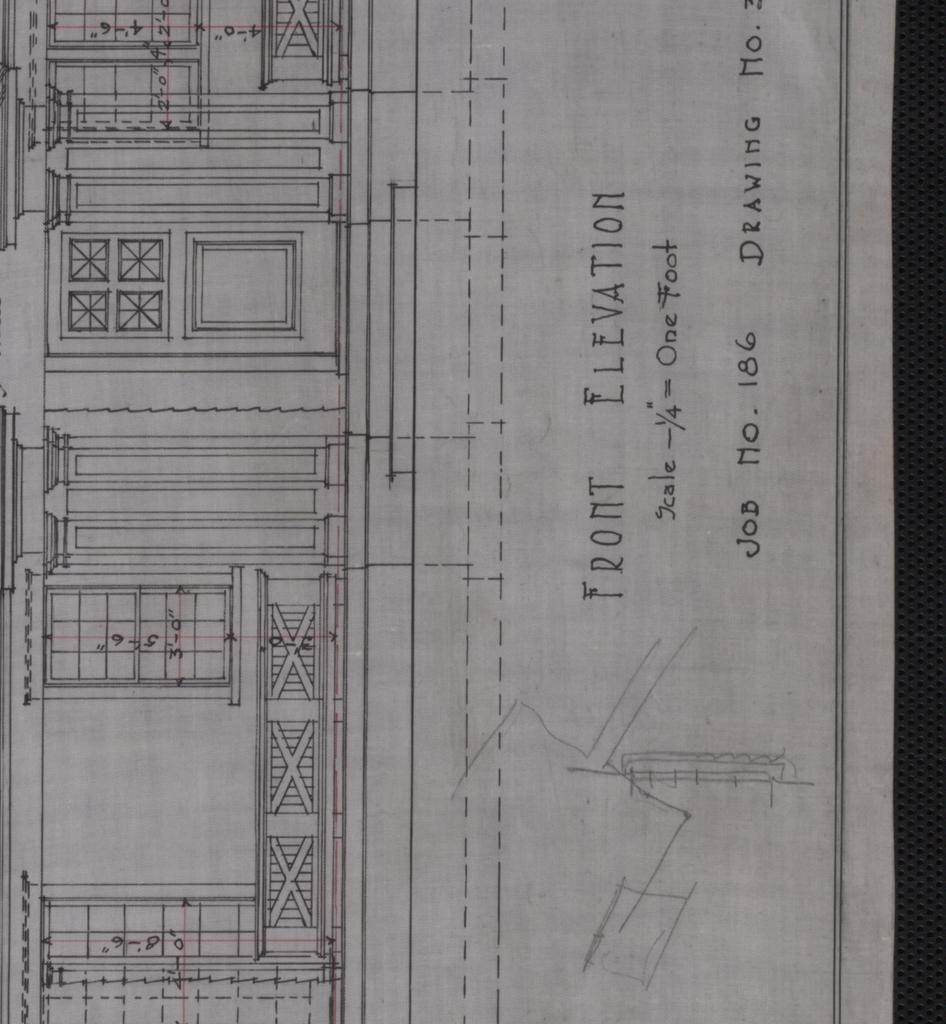 FRONT ELEVATION
Scale - 1/4" = One Foot
JOB NO. 186 DRAWING NO.
4'-6"
2'-0"
4"
2'-0"
5'-6"
3'-0"